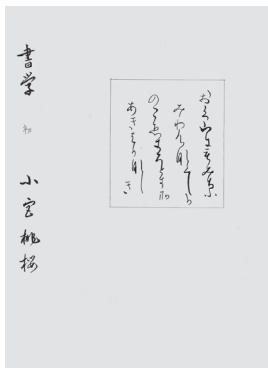 おく山にもみぢふ
みわけなくしか
のこゑきくときぞ
あきはかなしき
書学 初 小宮桃桜